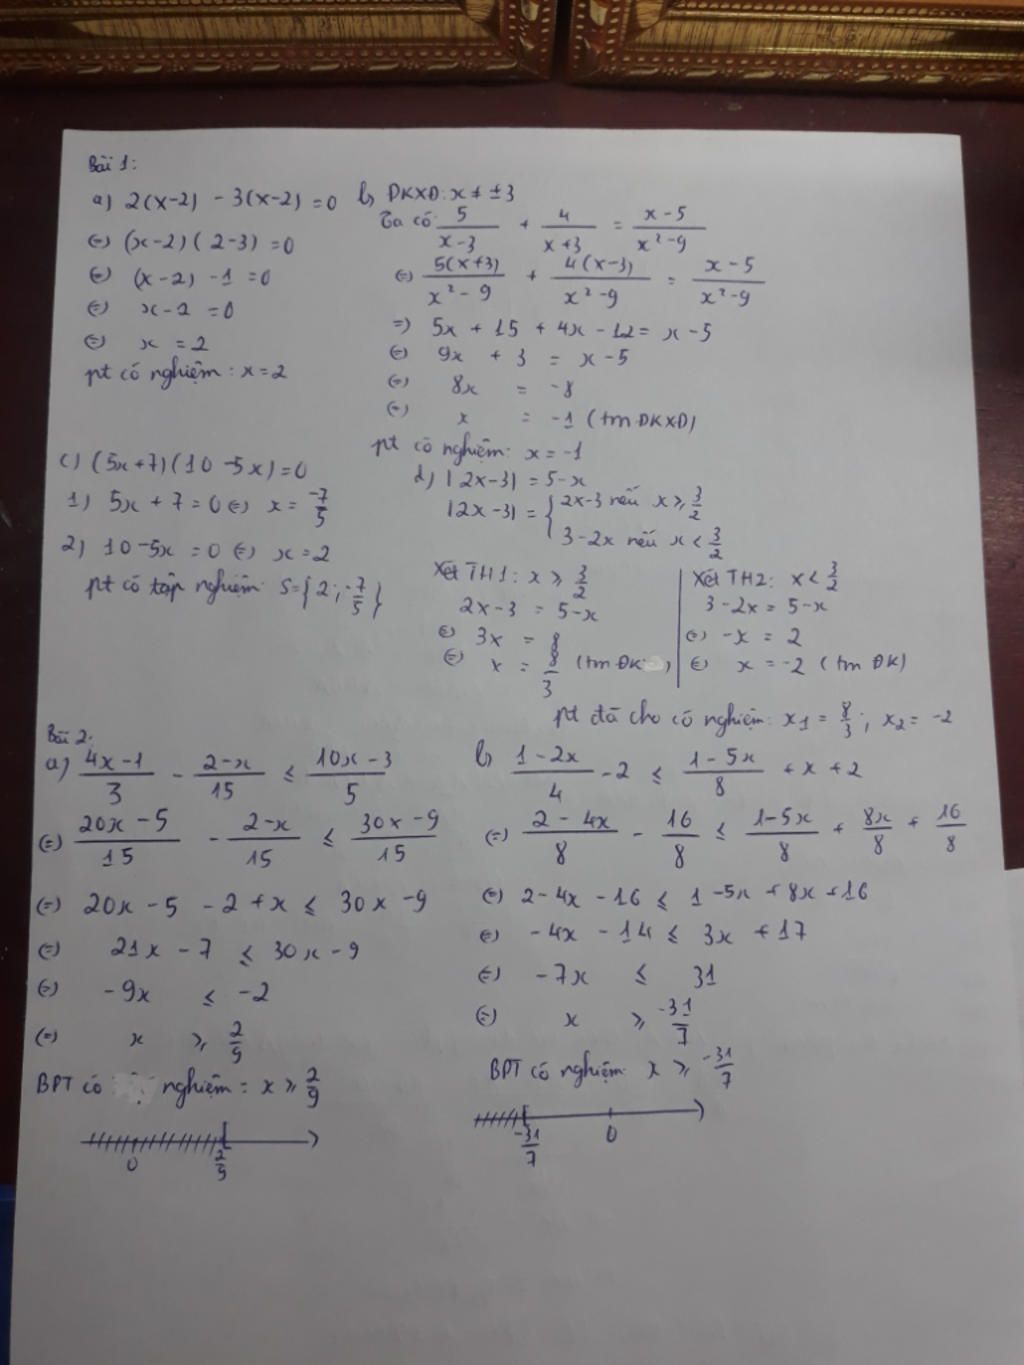 Bài 1:
a) 2(x-2) - 3(x-2) = 0
(=) (x-2)(2-3) = 0
(=) (x-2) -1 = 0
(=) x-2 = 0
(=) x = 2
pt có nghiệm: x = 2
b) ĐKXĐ: x ≠ ±3
Ta có: 5/(x-3) + 4/(x+3) = (x-5)/(x²-9)
(=) 5(x+3)/(x²-9) + 4(x-3)/(x²-9) = (x-5)/(x²-9)
=) 5x + 15 + 4x - 12 = x - 5
(=) 9x + 3 = x - 5
(=) 8x = -8
(=) x = -1 (tm ĐKXĐ)
pt có nghiệm: x = -1
c) (5x+7)(10-5x) = 0
1) 5x + 7 = 0 (=) x = -7/5
2) 10-5x = 0 (=) x = 2
pt có tập nghiệm: S = {2; -7/5}
d) |2x-3| = 5-x
|2x-3| = { 2x-3 nếu x ⩾ 3/2
3-2x nếu x < 3/2
Xét TH1: x ⩾ 3/2
2x-3 = 5-x
(=) 3x = 8
(=) x = 8/3 (tm ĐK)
Xét TH2: x < 3/2
3-2x = 5-x
(=) -x = 2
(=) x = -2 (tm ĐK)
pt đã cho có nghiệm: x₁ = 8/3; x₂ = -2
Bài 2:
a) (4x-1)/3 - (2-x)/15 ≤ (10x-3)/5
(=) (20x-5)/15 - (2-x)/15 ≤ (30x-9)/15
(=) 20x - 5 - 2 + x ≤ 30x - 9
(=) 21x - 7 ≤ 30x - 9
(=) -9x ≤ -2
(=) x ⩾ 2/9
BPT có nghiệm: x ⩾ 2/9
0 2/9
b) (1-2x)/4 - 2 ≤ (1-5x)/8 + x + 2
(=) (2-4x)/8 - 16/8 ≤ (1-5x)/8 + 8x/8 + 16/8
(=) 2-4x - 16 ≤ 1 - 5x + 8x + 16
(=) -4x - 14 ≤ 3x + 17
(=) -7x ≤ 31
(=) x ⩾ -31/7
BPT có nghiệm: x ⩾ -31/7
-31/7 0